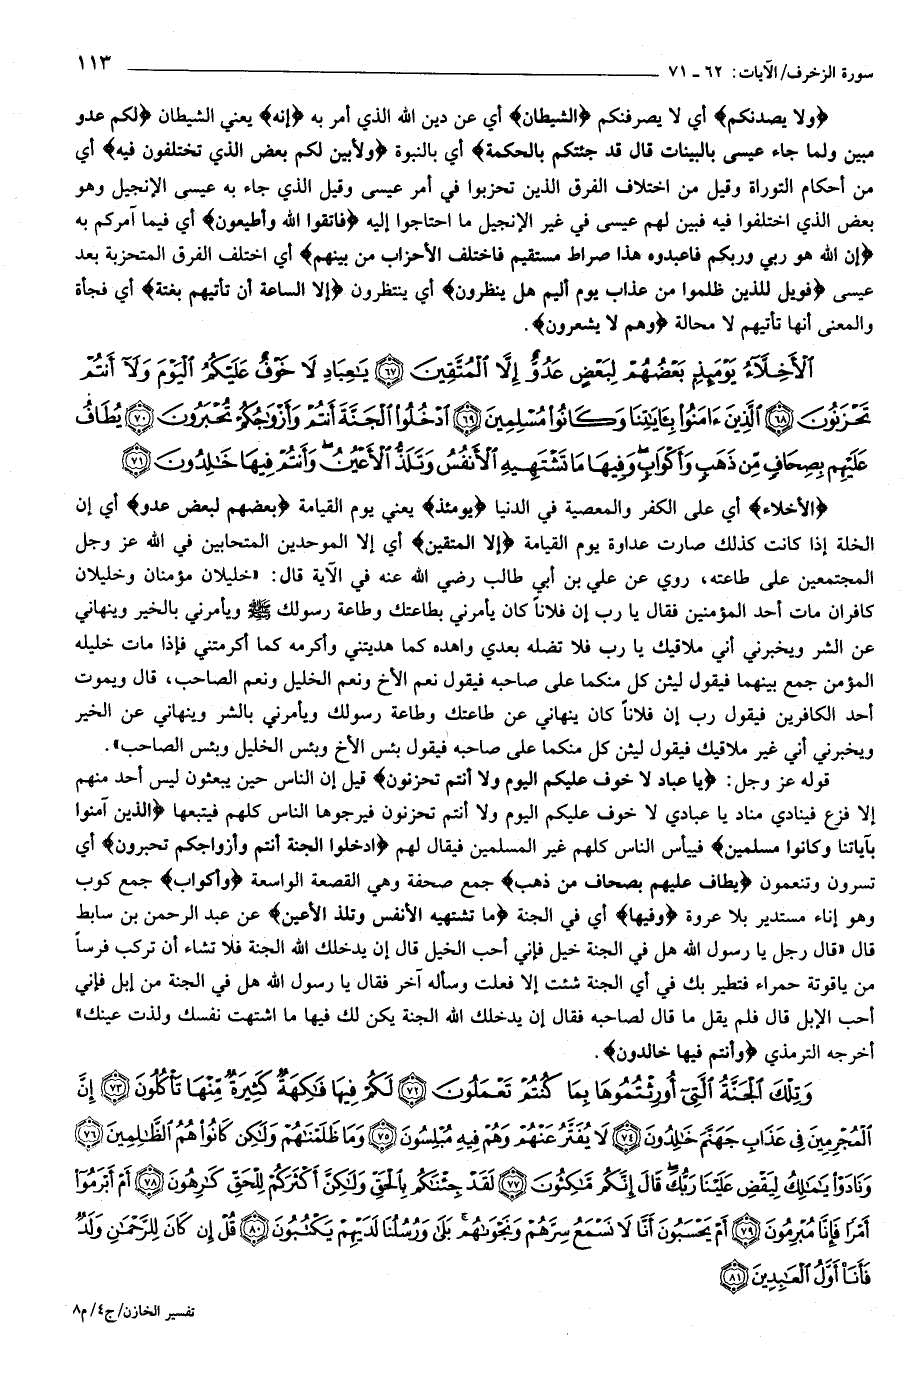 سورة الزخرف/الآيات: ٦٢ - ٧١
١١٣
﴿ولا يصدنكم﴾ أي لا يصرفنكم ﴿الشيطان﴾ أي عن دين الله الذي أمر به ﴿إنه﴾ يعني الشيطان ﴿لكم عدو
مبين ولما جاء عيسى بالبينات قال قد جئتكم بالحكمة﴾ أي بالنبوة ﴿ولأبين لكم بعض الذي تختلفون فيه﴾ أي
من أحكام التوراة وقيل من اختلاف الفرق الذين تحزبوا في أمر عيسى وقيل الذي جاء به عيسى الإنجيل وهو
بعض الذي اختلفوا فيه فبين لهم عيسى في غير الإنجيل ما احتاجوا إليه ﴿فاتقوا الله وأطيعون﴾ أي فيما آمركم به
﴿إن الله هو ربي وربكم فاعبدوه هذا صراط مستقيم فاختلف الأحزاب من بينهم﴾ أي اختلف الفرق المتحزبة بعد
عيسى ﴿فويل للذين ظلموا من عذاب يوم أليم هل ينظرون﴾ أي ينتظرون ﴿إلا الساعة أن تأتيهم بغتة﴾ أي فجأة
والمعنى أنها تأتيهم لا محالة ﴿وهم لا يشعرون﴾.
ٱلْأَخِلَّآءُ يَوْمَئِذٍۭ بَعْضُهُمْ لِبَعْضٍ عَدُوٌّ إِلَّا ٱلْمُتَّقِينَ ﴿٦٧﴾ يَٰعِبَادِ لَا خَوْفٌ عَلَيْكُمُ ٱلْيَوْمَ وَلَآ أَنتُمْ
تَحْزَنُونَ ﴿٦٨﴾ ٱلَّذِينَ ءَامَنُوا۟ بِـَٔايَٰتِنَا وَكَانُوا۟ مُسْلِمِينَ ﴿٦٩﴾ ٱدْخُلُوا۟ ٱلْجَنَّةَ أَنتُمْ وَأَزْوَٰجُكُمْ تُحْبَرُونَ ﴿٧٠﴾ يُطَافُ
عَلَيْهِم بِصِحَافٍ مِّن ذَهَبٍ وَأَكْوَابٍ ۖ وَفِيهَا مَا تَشْتَهِيهِ ٱلْأَنفُسُ وَتَلَذُّ ٱلْأَعْيُنُ ۖ وَأَنتُمْ فِيهَا خَٰلِدُونَ ﴿٧١﴾
﴿الأخلاء﴾ أي على الكفر والمعصية في الدنيا ﴿يومئذ﴾ يعني يوم القيامة ﴿بعضهم لبعض عدو﴾ أي إن
الخلة إذا كانت كذلك صارت عداوة يوم القيامة ﴿إلا المتقين﴾ أي إلا الموحدين المتحابين في الله عز وجل
المجتمعين على طاعته، روي عن علي بن أبي طالب رضي الله عنه في الآية قال: «خليلان مؤمنان وخليلان
كافران مات أحد المؤمنين فقال يا رب إن فلاناً كان يأمرني بطاعتك وطاعة رسولك ﷺ ويأمرني بالخير وينهاني
عن الشر ويخبرني أني ملاقيك يا رب فلا تضله بعدي واهده كما هديتني وأكرمه كما أكرمتني فإذا مات خليله
المؤمن جمع بينهما فيقول ليثن كل منكما على صاحبه فيقول نعم الأخ ونعم الخليل ونعم الصاحب، قال ويموت
أحد الكافرين فيقول رب إن فلاناً كان ينهاني عن طاعتك وطاعة رسولك ويأمرني بالشر وينهاني عن الخير
ويخبرني أني غير ملاقيك فيقول ليثن كل منكما على صاحبه فيقول بئس الأخ وبئس الخليل وبئس الصاحب».
قوله عز وجل: ﴿يا عباد لا خوف عليكم اليوم ولا أنتم تحزنون﴾ قيل إن الناس حين يبعثون ليس أحد منهم
إلا فزع فينادي مناد يا عبادي لا خوف عليكم اليوم ولا أنتم تحزنون فيرجوها الناس كلهم فيتبعها ﴿الذين آمنوا
بآياتنا وكانوا مسلمين﴾ فييأس الناس كلهم غير المسلمين فيقال لهم ﴿ادخلوا الجنة أنتم وأزواجكم تحبرون﴾ أي
تسرون وتنعمون ﴿يطاف عليهم بصحاف من ذهب﴾ جمع صحفة وهي القصعة الواسعة ﴿وأكواب﴾ جمع كوب
وهو إناء مستدير بلا عروة ﴿وفيها﴾ أي في الجنة ﴿ما تشتهيه الأنفس وتلذ الأعين﴾ عن عبد الرحمن بن سابط
قال «قال رجل يا رسول الله هل في الجنة خيل فإني أحب الخيل قال إن يدخلك الله الجنة فلا تشاء أن تركب فرساً
من ياقوتة حمراء فتطير بك في أي الجنة شئت إلا فعلت وسأله آخر فقال يا رسول الله هل في الجنة من إبل فإني
أحب الإبل قال فلم يقل ما قال لصاحبه فقال إن يدخلك الله الجنة يكن لك فيها ما اشتهت نفسك ولذت عينك»
أخرجه الترمذي ﴿وأنتم فيها خالدون﴾.
وَتِلْكَ ٱلْجَنَّةُ ٱلَّتِىٓ أُورِثْتُمُوهَا بِمَا كُنتُمْ تَعْمَلُونَ ﴿٧٢﴾ لَكُمْ فِيهَا فَٰكِهَةٌ كَثِيرَةٌ مِّنْهَا تَأْكُلُونَ ﴿٧٣﴾ إِنَّ
ٱلْمُجْرِمِينَ فِى عَذَابِ جَهَنَّمَ خَٰلِدُونَ ﴿٧٤﴾ لَا يُفَتَّرُ عَنْهُمْ وَهُمْ فِيهِ مُبْلِسُونَ ﴿٧٥﴾ وَمَا ظَلَمْنَٰهُمْ وَلَٰكِن كَانُوا۟ هُمُ ٱلظَّٰلِمِينَ ﴿٧٦﴾
وَنَادَوْا۟ يَٰمَٰلِكُ لِيَقْضِ عَلَيْنَا رَبُّكَ ۖ قَالَ إِنَّكُم مَّٰكِثُونَ ﴿٧٧﴾ لَقَدْ جِئْنَٰكُم بِٱلْحَقِّ وَلَٰكِنَّ أَكْثَرَكُمْ لِلْحَقِّ كَٰرِهُونَ ﴿٧٨﴾ أَمْ أَبْرَمُوٓا۟
أَمْرًا فَإِنَّا مُبْرِمُونَ ﴿٧٩﴾ أَمْ يَحْسَبُونَ أَنَّا لَا نَسْمَعُ سِرَّهُمْ وَنَجْوَىٰهُم ۚ بَلَىٰ وَرُسُلُنَا لَدَيْهِمْ يَكْتُبُونَ ﴿٨٠﴾ قُلْ إِن كَانَ لِلرَّحْمَٰنِ وَلَدٌ
فَأَنَا۠ أَوَّلُ ٱلْعَٰبِدِينَ ﴿٨١﴾
تفسير الخازن/ج٤/م٨